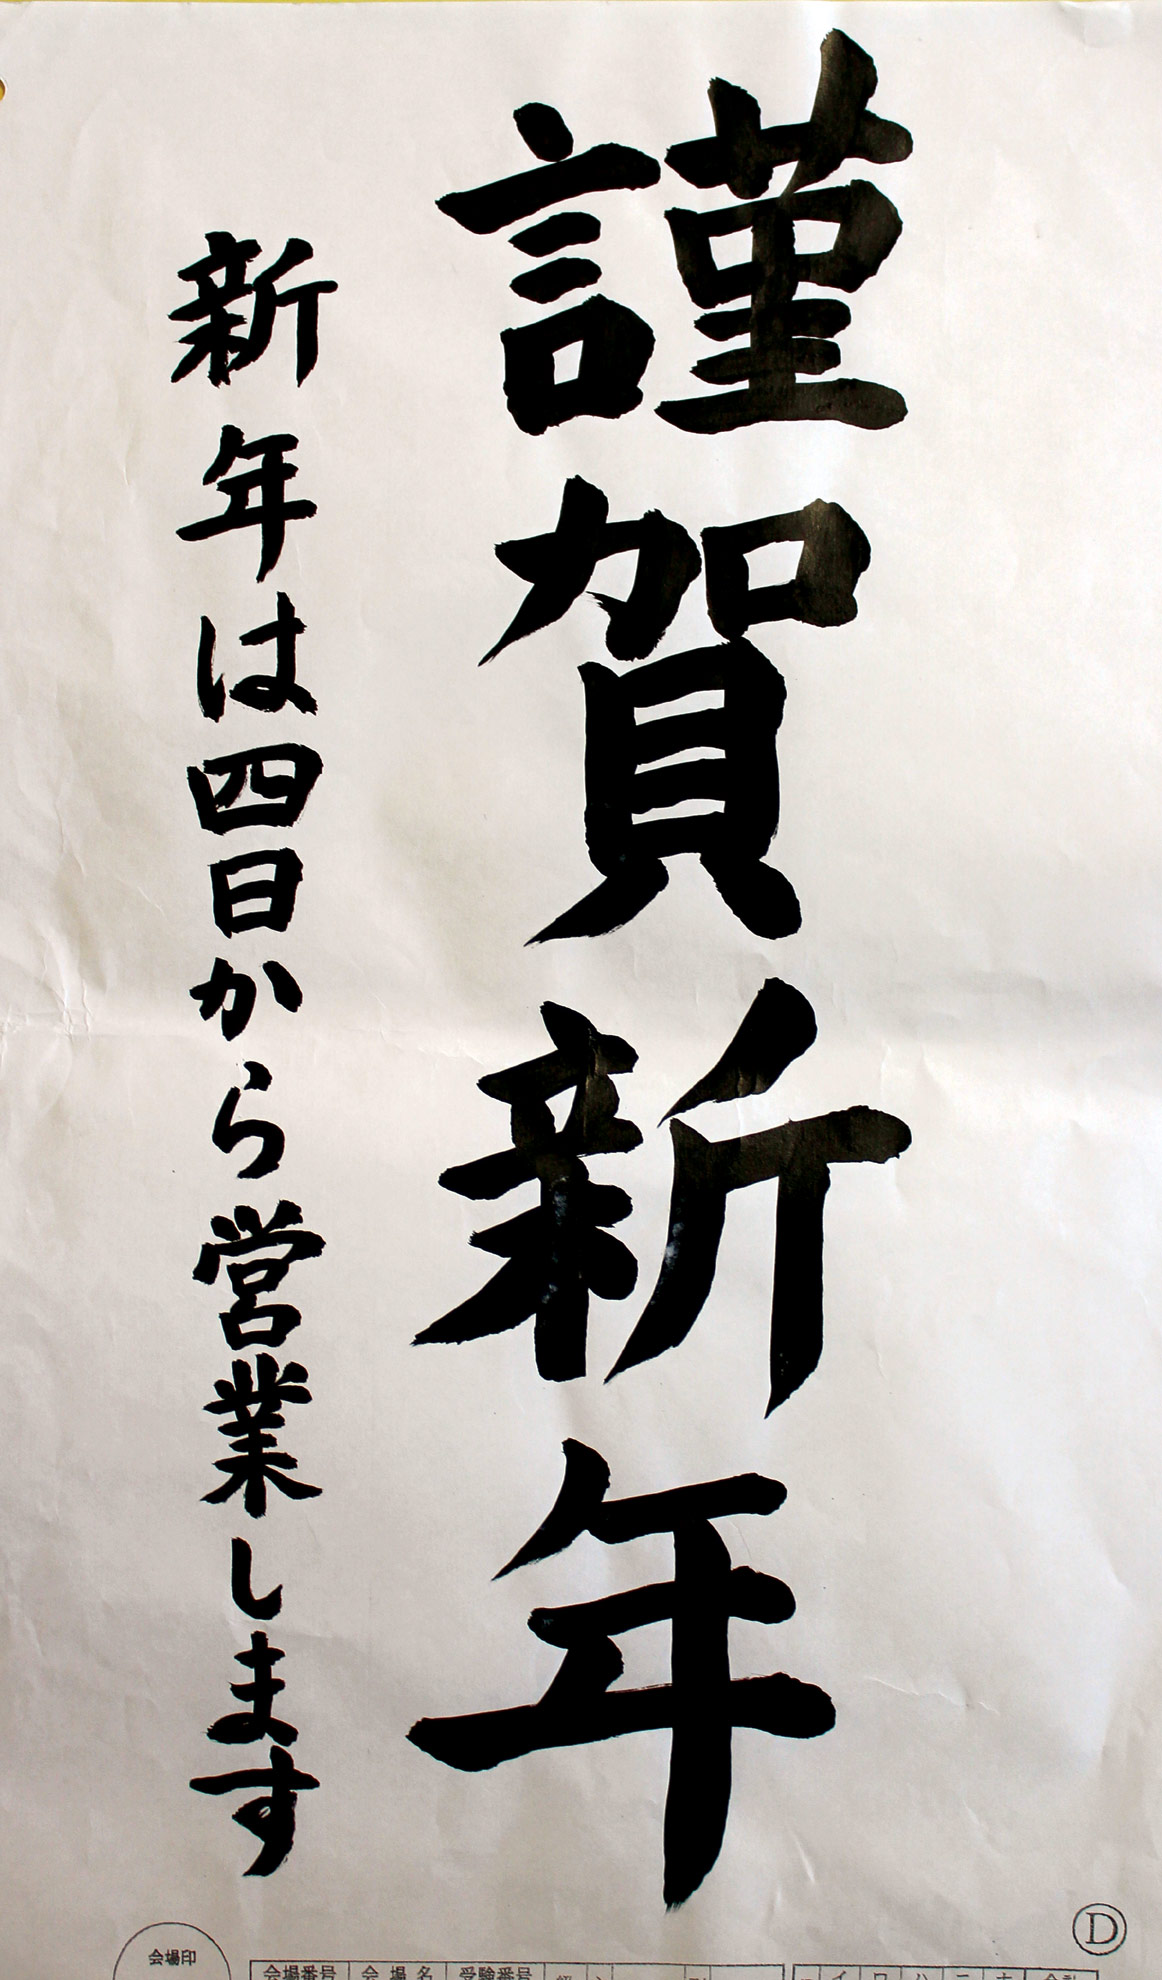 謹賀新年
新年は四日から営業します
D
会場印
会場番号 会場名 受験番号
イ ロ ハ ニ ホ 合計